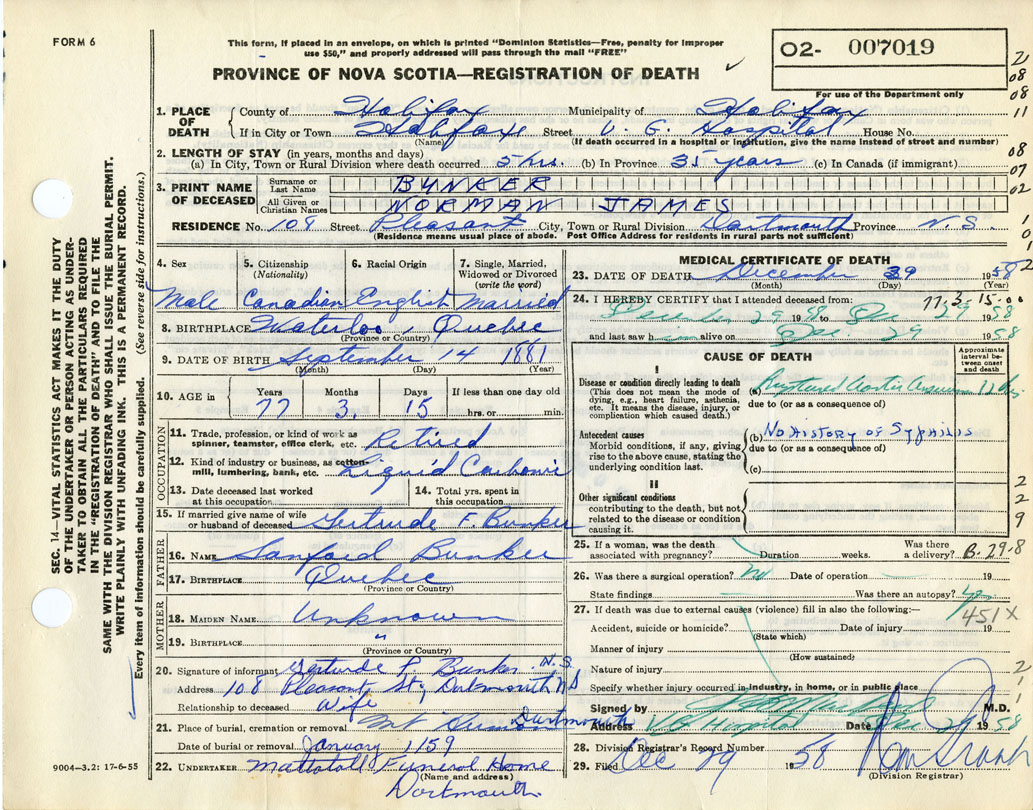 FORM 6
This form, if placed in an envelope, on which is printed "Dominion Statistics—Free, penalty for improper
use $50," and properly addressed will pass through the mail "FREE"
O2- 007019
For use of the Department only
PROVINCE OF NOVA SCOTIA—REGISTRATION OF DEATH
1. PLACE OF DEATH County of Halifax Municipality of Halifax
If in City or Town Halifax Street V. G. Hospital House No.
(Name) (If death occurred in a hospital or institution, give the name instead of street and number)
2. LENGTH OF STAY (in years, months and days)
(a) In City, Town or Rural Division where death occurred 5 hrs. (b) In Province 35 years (c) In Canada (if immigrant)
3. PRINT NAME OF DECEASED Surname or Last Name BUNKER
All Given or Christian Names NORMAN JAMES
RESIDENCE No. 108 Street Pleasant City, Town or Rural Division Dartmouth Province N.S.
(Residence means usual place of abode. Post Office Address for residents in rural parts not sufficient)
2
08
08
11
08
07
02
1
0
1
SEC. 14—VITAL STATISTICS ACT MAKES IT THE DUTY
OF THE UNDERTAKER OR PERSON ACTING AS UNDER-
TAKER TO OBTAIN ALL THE PARTICULARS REQUIRED
IN THE "REGISTRATION OF DEATH" AND TO FILE THE
SAME WITH THE DIVISION REGISTRAR WHO SHALL ISSUE THE BURIAL PERMIT.
WRITE PLAINLY WITH UNFADING INK. THIS IS A PERMANENT RECORD.
Every item of information should be carefully supplied. (See reverse side for instructions.)
4. Sex 5. Citizenship (Nationality) 6. Racial Origin 7. Single, Married, Widowed or Divorced (write the word)
Male Canadian English Married
8. BIRTHPLACE Waterloo, Quebec
(Province or Country)
9. DATE OF BIRTH September 14 1881
(Month) (Day) (Year)
10. AGE in Years Months Days If less than one day old
77 3 15 hrs. or min.
OCCUPATION
11. Trade, profession, or kind of work as
spinner, teamster, office clerk, etc. Retired
12. Kind of industry or business, as cotton-
mill, lumbering, bank, etc. Liquid Carbonic
13. Date deceased last worked at this occupation 14. Total yrs. spent in this occupation
15. If married give name of wife
or husband of deceased Gertrude F. Bunker
FATHER
16. NAME Sanford Bunker
17. BIRTHPLACE Quebec
(Province or Country)
MOTHER
18. MAIDEN NAME Unknown
19. BIRTHPLACE "
(Province or Country)
20. Signature of informant Gertrude F. Bunker N.S.
Address 108 Pleasant St., Dartmouth NS
Relationship to deceased Wife
21. Place of burial, cremation or removal Mt Dartmouth
Date of burial or removal January 1 1959
22. UNDERTAKER Mattatall Funeral Home
(Name and address)
Dartmouth
9004-3.2: 17-6-55
MEDICAL CERTIFICATE OF DEATH
23. DATE OF DEATH December 29 1958
(Month) (Day) (Year)
77.3.15.00
24. I HEREBY CERTIFY that I attended deceased from:
December 29 1958 to Dec 29 1958
and last saw him alive on Dec 29 1958
CAUSE OF DEATH
Approximate interval between onset and death
I
Disease or condition directly leading to death
(This does not mean the mode of
dying, e.g., heart failure, asthenia,
etc. It means the disease, injury, or
complication which caused death.)
(a) Ruptured Aortic Aneurism
due to (or as a consequence of)
Antecedent causes
Morbid conditions, if any, giving
rise to the above cause, stating the
underlying condition last.
(b) No History of Syphilis
due to (or as a consequence of)
(c)
II
Other significant conditions
contributing to the death, but not
related to the disease or condition
causing it.
2
2
9
25. If a woman, was the death associated with pregnancy? Duration weeks. Was there a delivery? B-29-8
26. Was there a surgical operation? no Date of operation 19
State findings Was there an autopsy? yes
27. If death was due to external causes (violence) fill in also the following:— 451X
Accident, suicide or homicide? Date of injury 19
(State which)
Manner of injury
(How sustained)
Nature of injury
Specify whether injury occurred in industry, in home, or in public place
2
1
1
Signed by M.D.
Address V.G. Hospital Date Dec 29 1958
28. Division Registrar's Record Number
29. Filed Dec 29 1958
(Division Registrar)